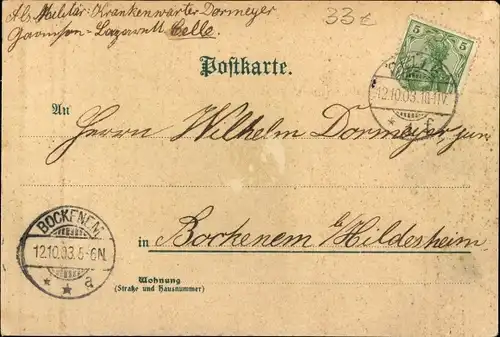 Als Militär-Krankenwärter Dormeyer
Garnison-Lazarett Celle.
33€
5 5
Postkarte.
12.10.03.
An
Herrn Wilhelm Dormeyer, jun.
BOCKENEM
12.10.03.5-6N.
* * a
in Bockenem b/Hildesheim
Wohnung
(Straße und Hausnummer)